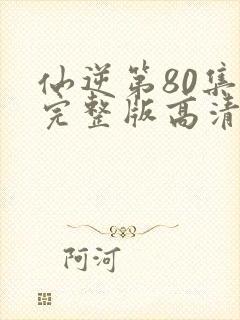 仙逆第80集
完整版高清
阿河